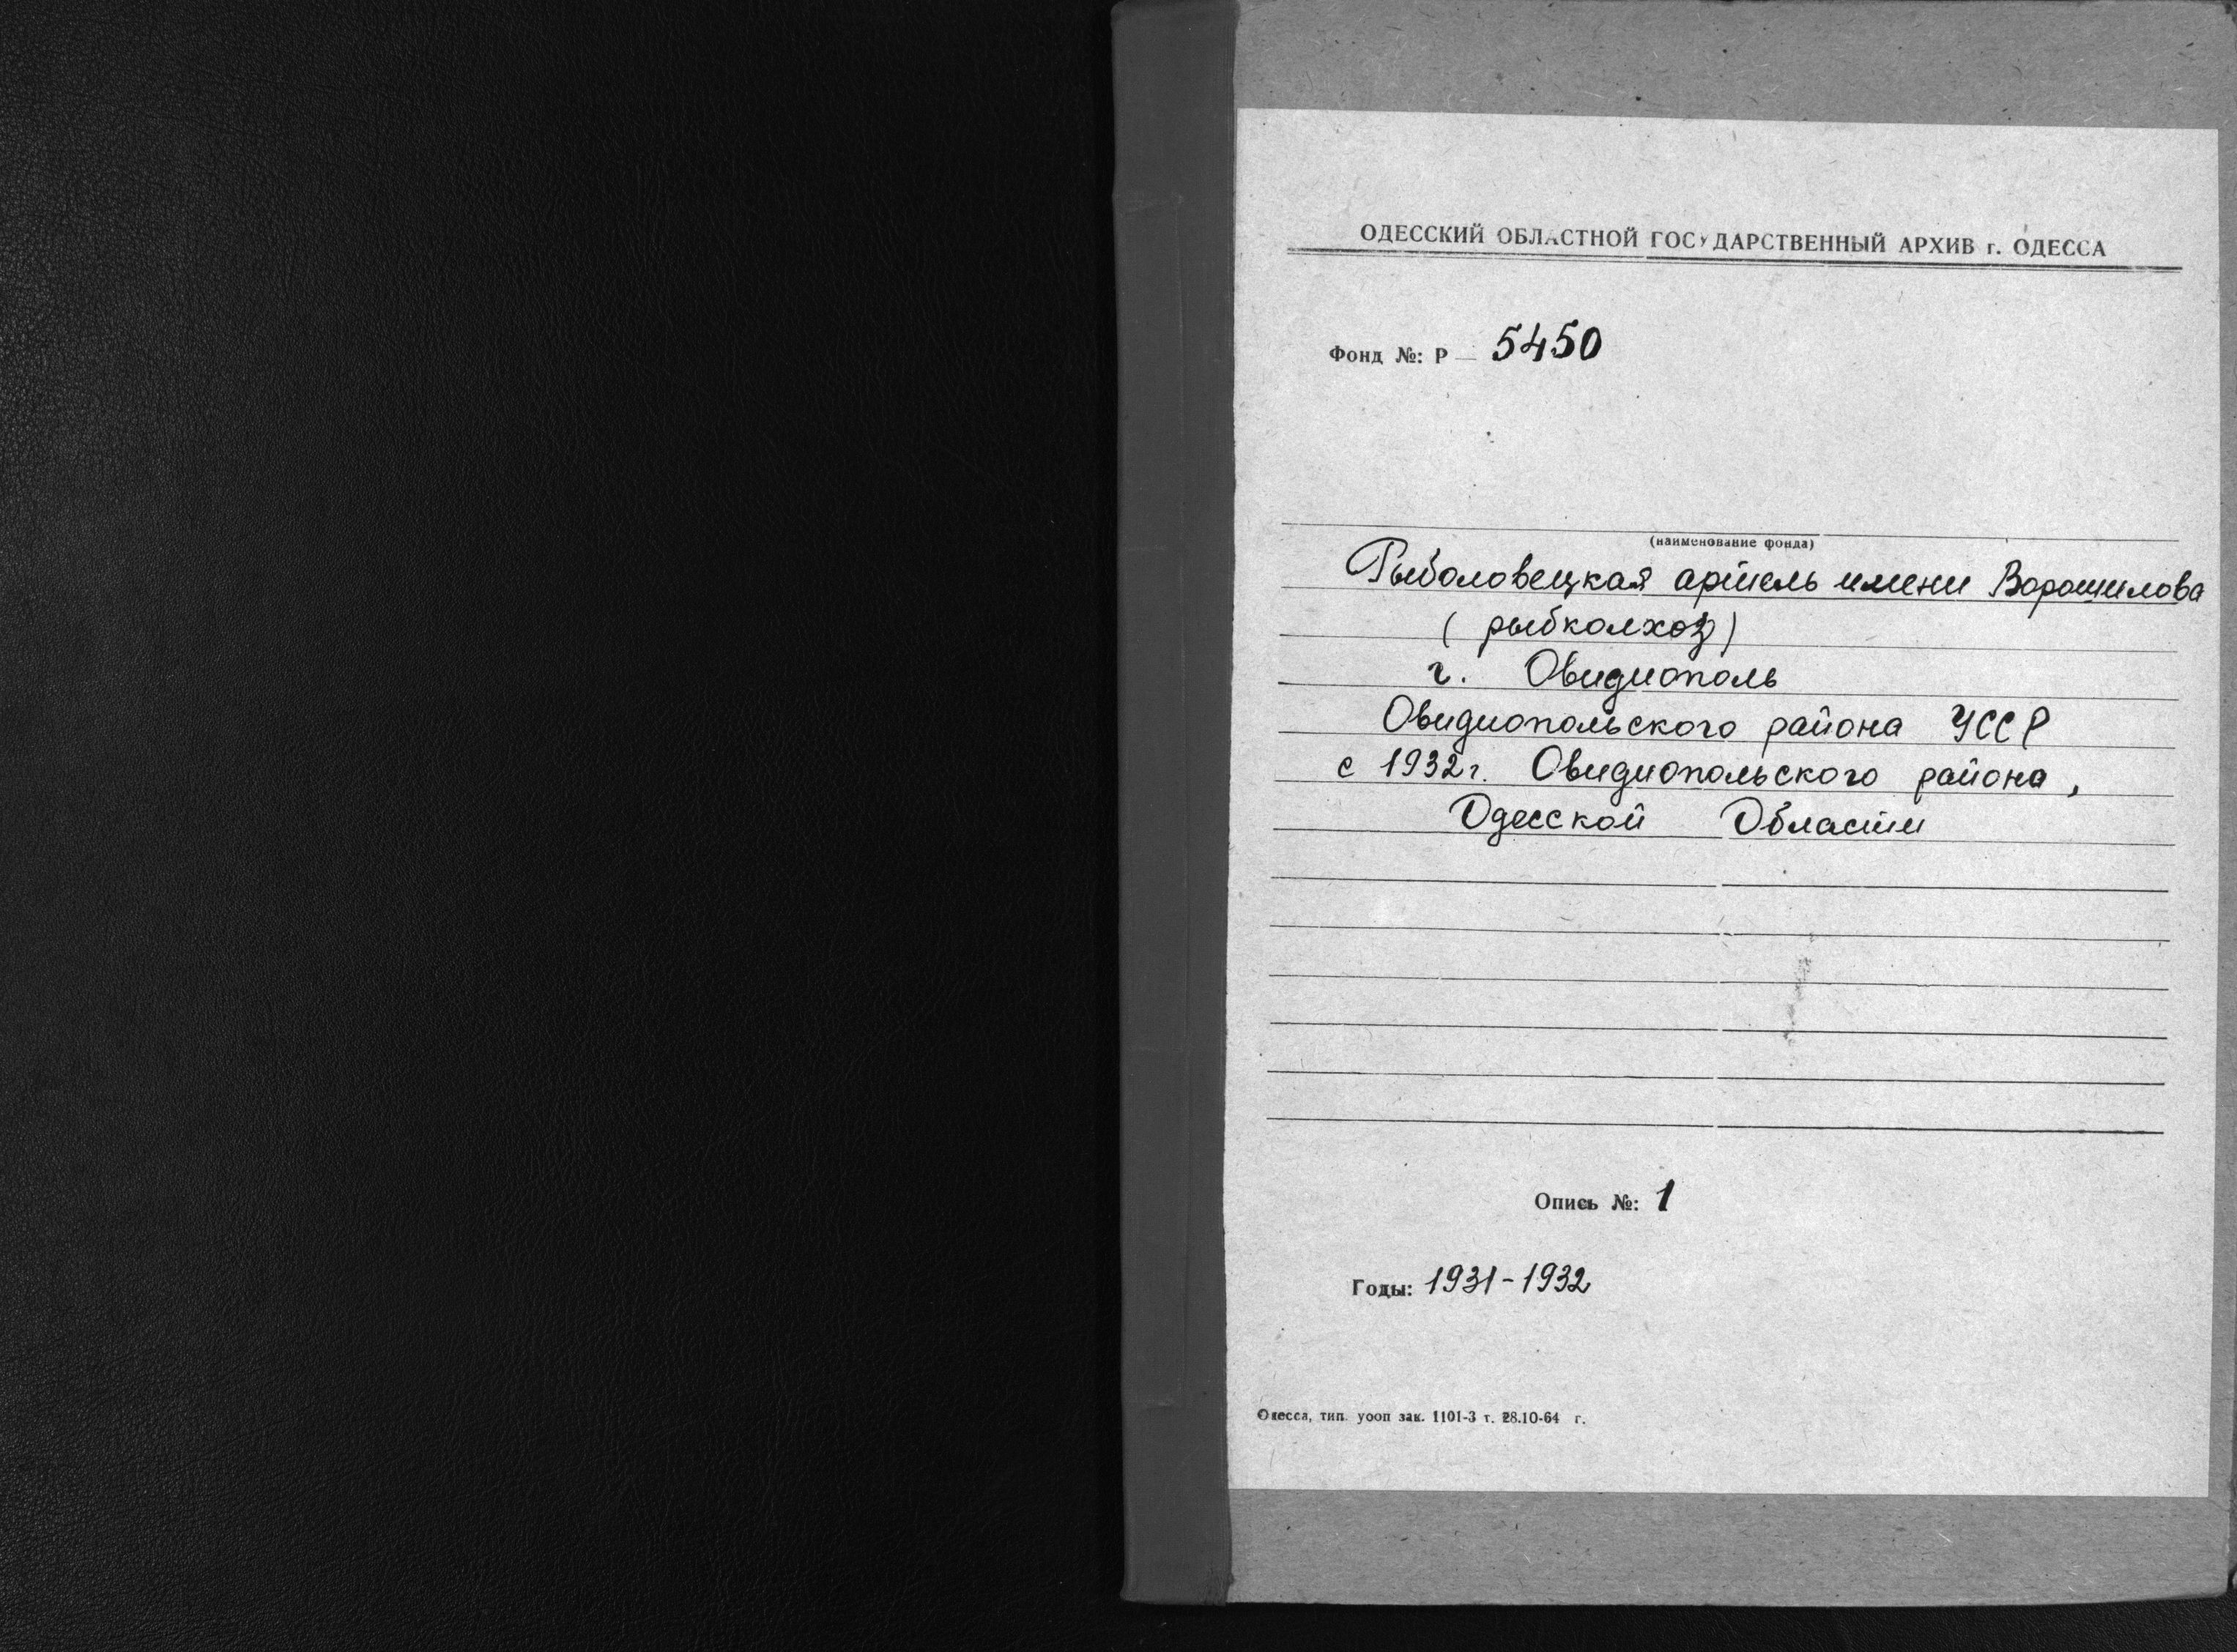 ОДЕССКИЙ ОБЛАСТНОЙ ГОСУДАРСТВЕННЫЙ АРХИВ г. ОДЕССА
Фонд №: Р — 5450
(наименование фонда)
Рыболовецкая артель имени Ворошилова
( рыбколхоз)
г. Овидиополь
Овидиопольского района УССР
с 1932г. Овидиопольского района,
Одесской Области
Опись №: 1
Годы: 1931-1932
Одесса, тип. уооп зак. 1101-3 т. 28.10-64 г.